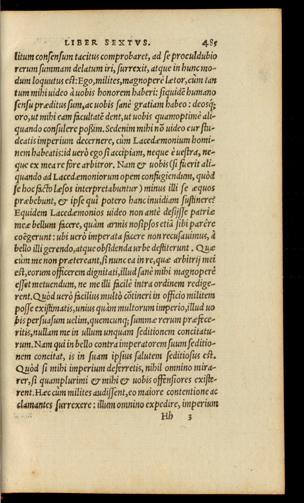 LIBER SEXTVS. 485
litum consensum tacitus comprobaret, ad se proculdubio
rerum summam delatum iri, surrexit, atque in hunc mo-
dum loquutus est: Ego, milites, magnopere lætor, cùm tan
tum mihi uideo à uobis honorem haberi: siquidē humano
sensu præditus sum, ac uobis sanè gratiam habeo: deosq́;
oro, ut mihi eam facultatē dent, ut uobis quamoptimè ali-
quando consulere poßim. Sed enim mihi nō uideo cur stu-
deatis imperium decernere, cùm Lacedæmonium homi-
nem habeatis: id uerò ego si accipiam, neque è uestra, ne-
que ex mea re fore arbitror. Nam & uobis (si fuerit ali-
quando ad Lacedæmoniorum opem confugiendum, quòd
se hoc facto læsos interpretabuntur) minus illi se æquos
præbebunt, & ipse quî potero hanc inuidiam sustinere?
Equidem Lacedæmonios uideo non antè desijsse patriæ
meæ bellum facere, quàm armis nosipsos etiā sibi parère
coëgerunt: ubi uerò imperata facere non recusauimus, à
bello illi gerendo, atque obsidenda urbe destiterunt. Quæ
cùm me non prætereant, si nunc ea in re, quæ arbitrij mei
est, eorum officerem dignitati, illud sanè mihi magnoperè
esset metuendum, ne me illi facilè intra ordinem redige-
rent. Quòd uerò facilius multò cōtineri in officio militem
posse existimatis, unius quàm multorum imperio, illud uo
bis persuasum uelim, quemcunq; summæ rerum præfece-
ritis, nullam me in ullum unquam seditionem concitatu-
rum. Nam qui in bello contra imperatorem suum seditio-
nem concitat, is in suam ipsius salutem seditiosus est.
Quòd si mihi imperium deferretis, nihil omnino mira-
rer, si quamplurimi & mihi & uobis offensiores existe-
rent. Hæc cùm milites audissent, eo maiore contentione ac
clamantes surrexere: illum omnino expedire, imperium
Hh 3